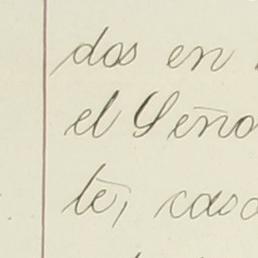 dos en
el Seño
te, casa